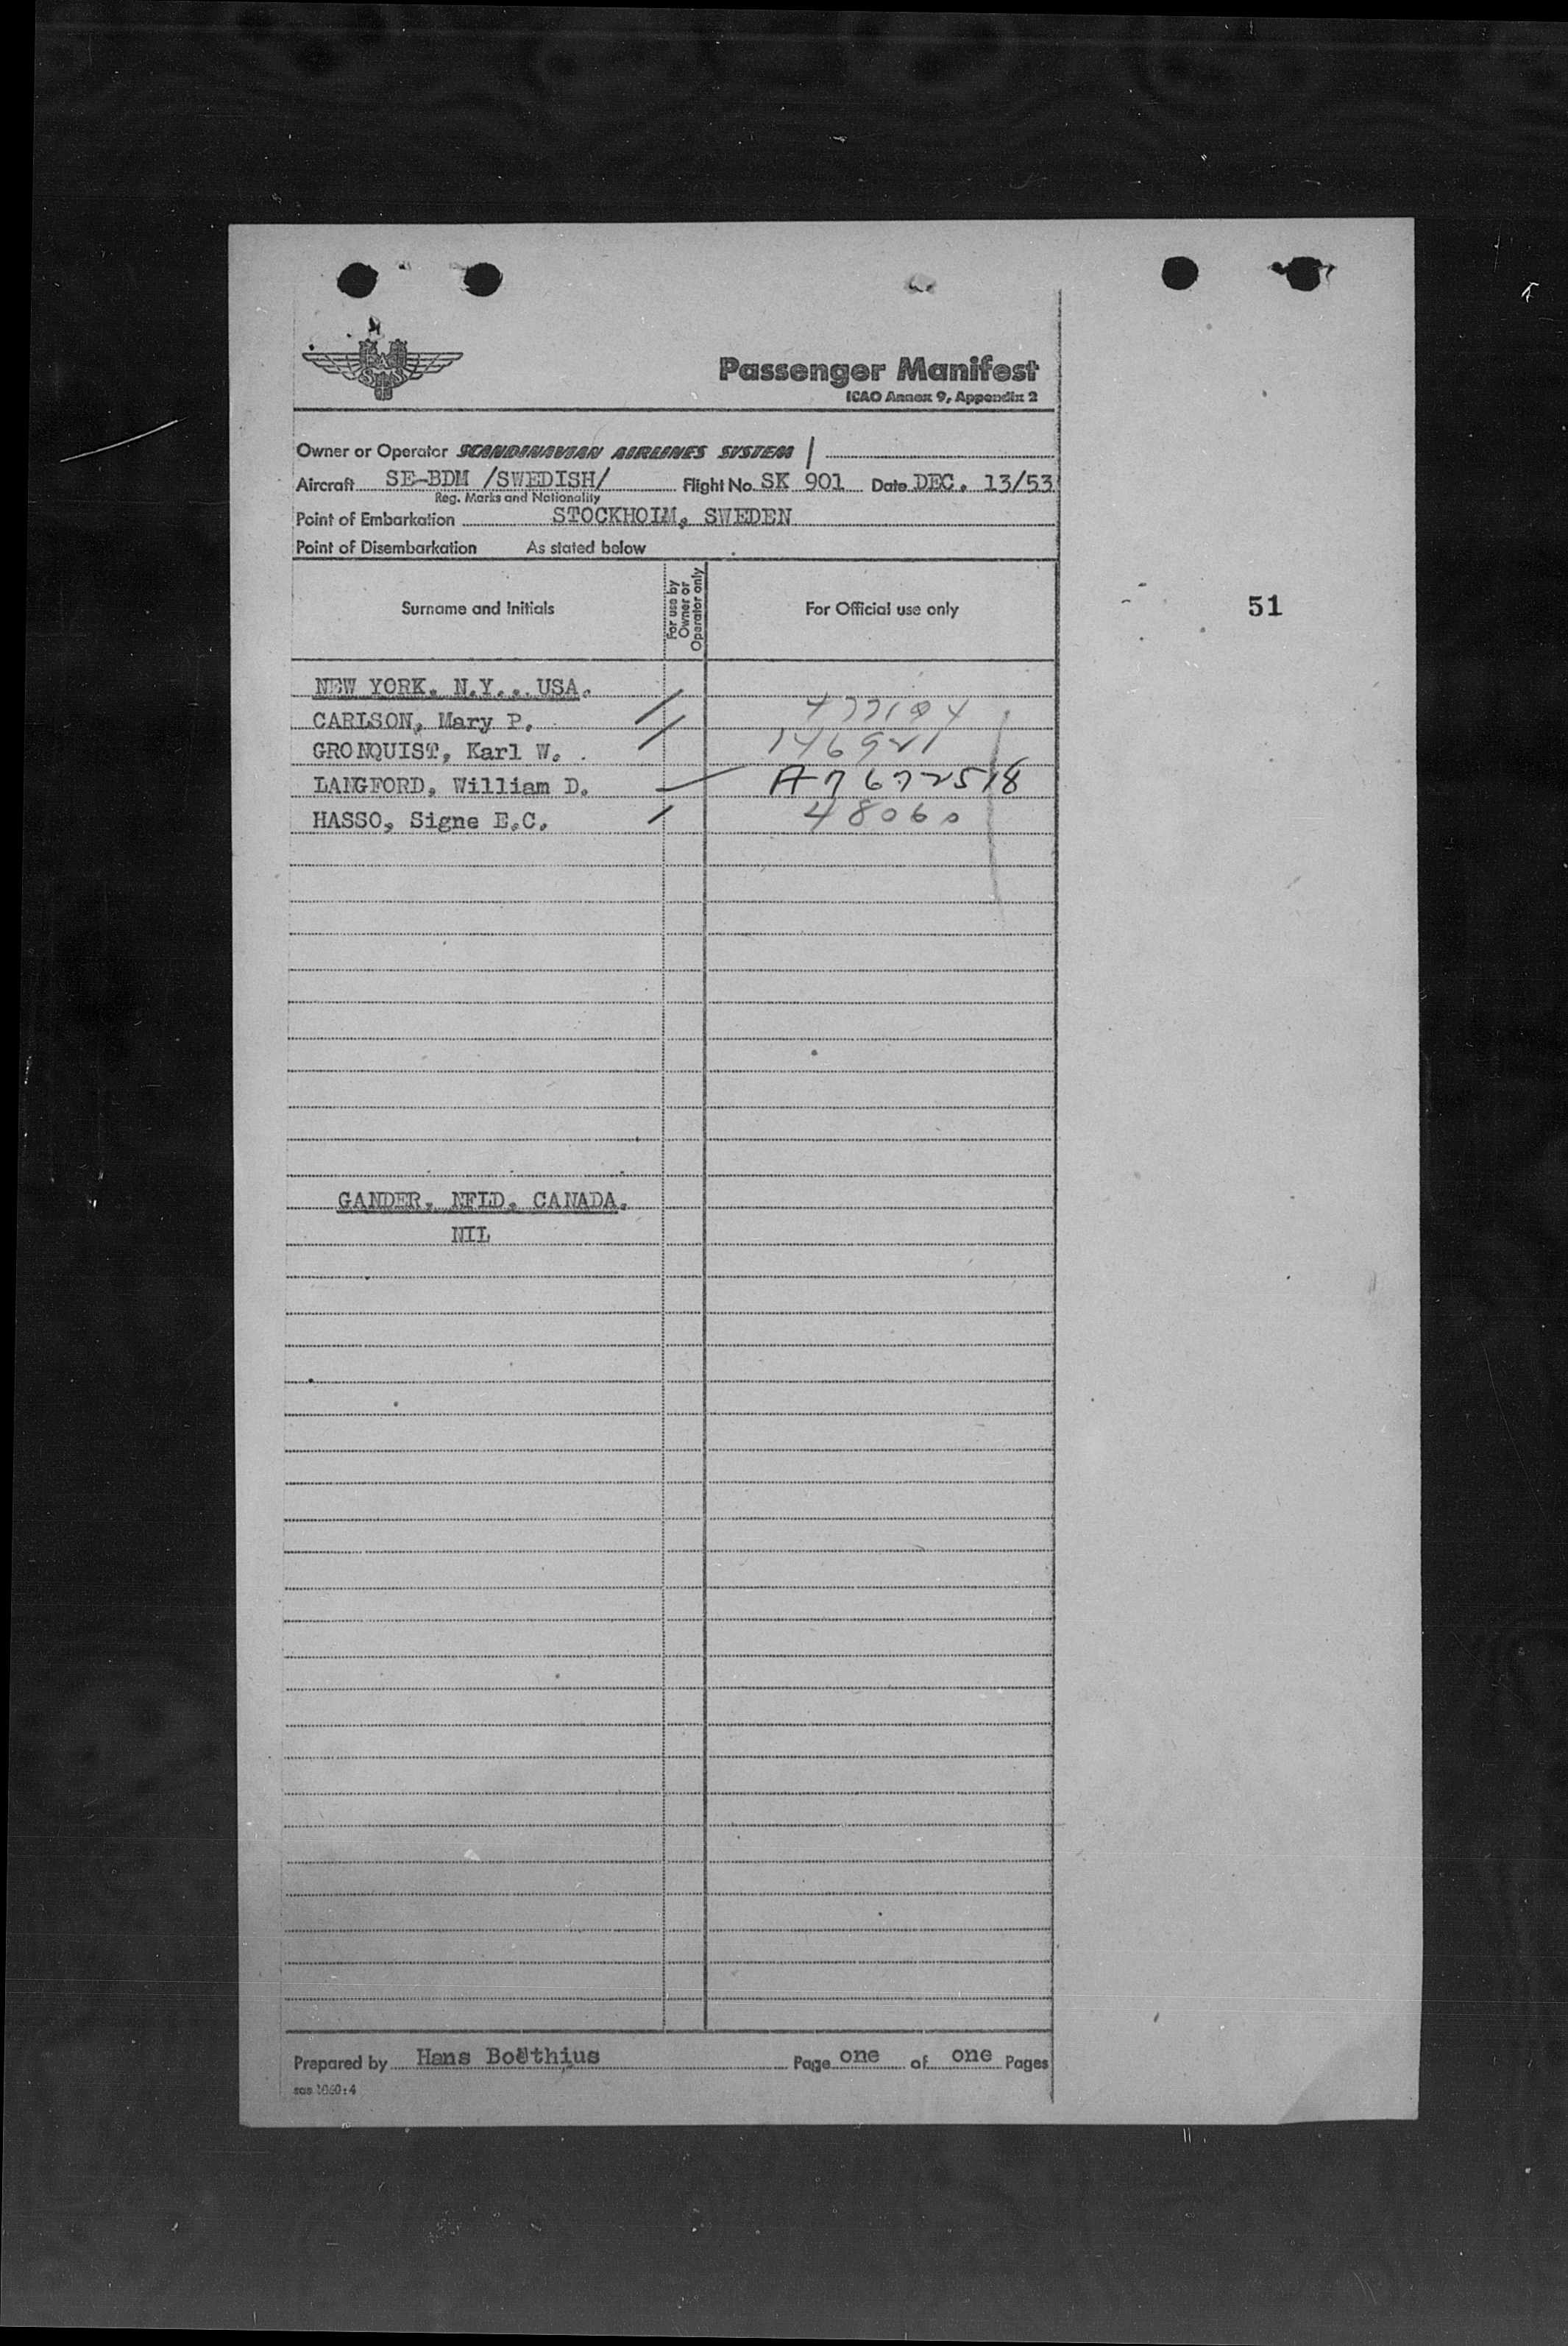 SAS
Passenger Manifest
ICAO Annex 9, Appendix 2
Owner or Operator SCANDINAVIAN AIRLINES SYSTEM
Aircraft SE-BDM /SWEDISH/ Flight No. SK 901 Date DEC. 13/53
Reg. Marks and Nationality
Point of Embarkation STOCKHOLM, SWEDEN
Point of Disembarkation As stated below
Surname and Initials
For use by Owner or Operator only
For Official use only
51
NEW YORK. N.Y.. USA.
CARLSON, Mary P. 477104
GRONQUIST, Karl W. 146921
LANGFORD, William D. A7672518
HASSO, Signe E.C. 48060
GANDER, NFLD. CANADA.
NIL
Prepared by Hans Boëthius Page one of one Pages